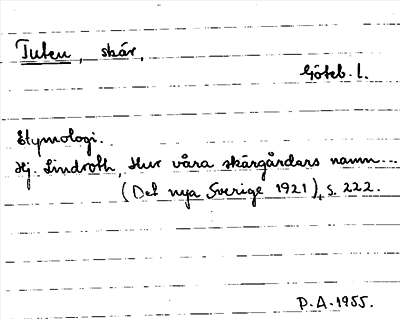 Tuten, skär,
Göteb. l.
Etymologi.
Hj. Lindroth, Hur våra skärgårdars namn...
(Det nya Sverige 1921), s. 222.
P.A. 1955.